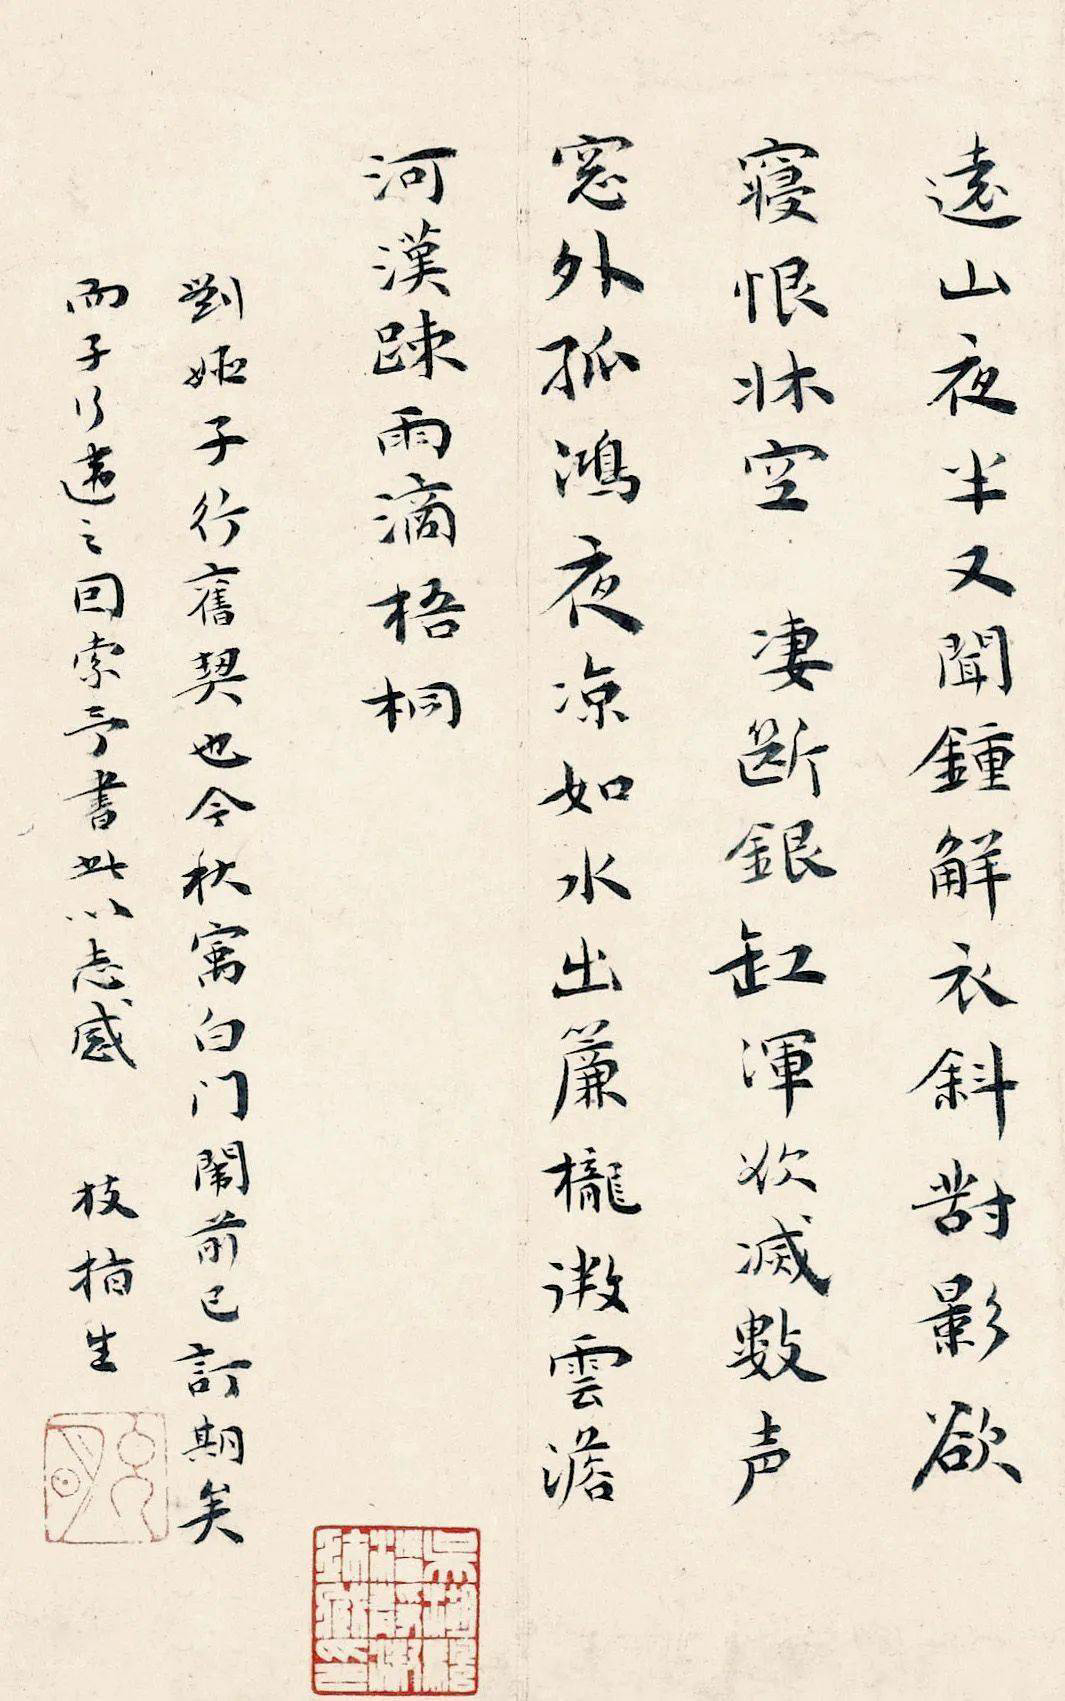 遠山夜半又聞鍾解衣斜對影欲
寢恨牀空 凄斷銀缸渾欲滅數声
窓外孤鴻夜凉如水出簾櫳微雲澹
河漢踈雨滴梧桐
劉姬子行舊契也今秋寓白门鬧前已訂期矣
而子行違之回索予書此以志感 枝指生